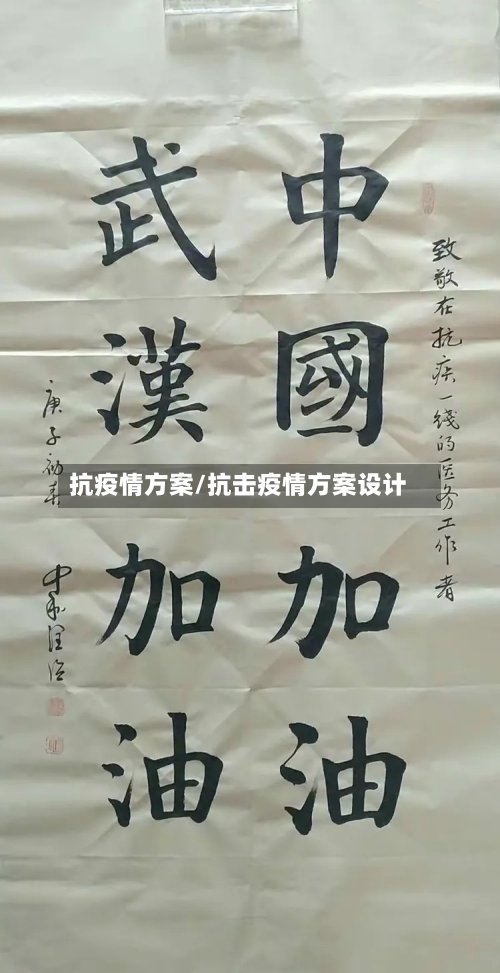 致敬在抗疾一线的医务工作者
中國加油
武漢加油
庚子初春
抗疫情方案/抗击疫情方案设计